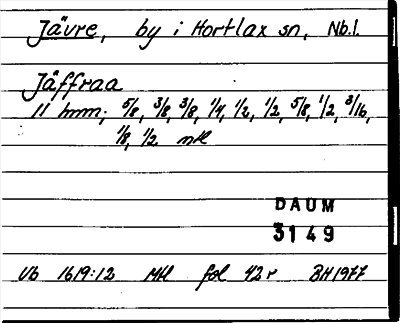 Jävre, by i Hortlax sn, Nb.l.
Jäffraa
11 hmm; 5/8, 3/8, 3/8, 1/4, 1/2, 1/2, 5/8, 1/2, 3/16,
1/8, 1/2 mtl
DAUM
3149
Vb 1619:12 Mtl fol 42r BH1977